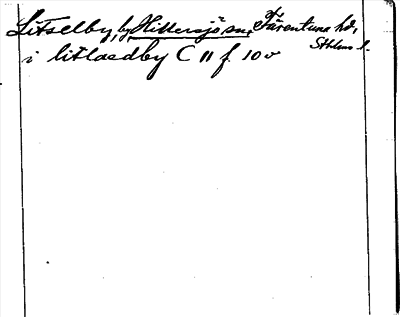 Litselby, by, Hittersjö sn, Färentuna hd,
Sthlms l.
i litlaedby C 11 f. 10 v